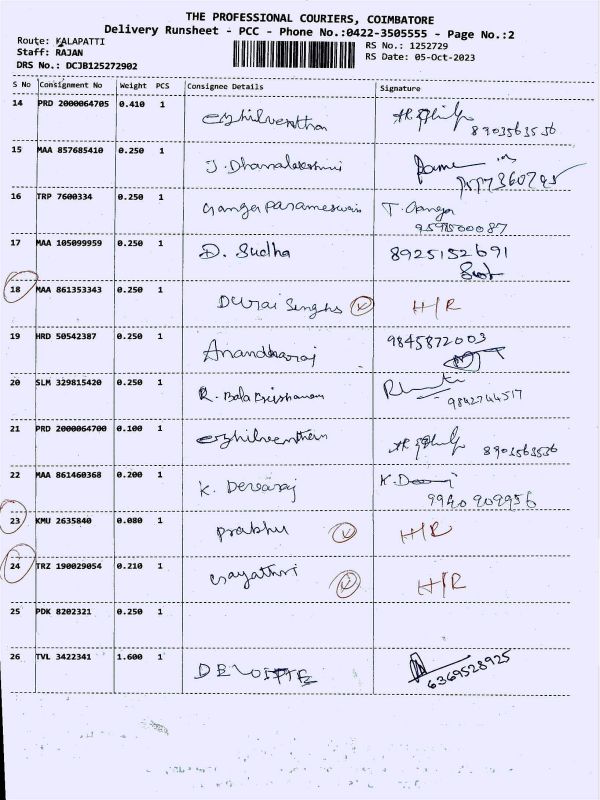 THE PROFESSIONAL COURIERS, COIMBATORE
Delivery Runsheet - PCC - Phone No.:0422-3505555 - Page No.:2
Route: KALAPATTI
Staff: RAJAN
DRS No.: DCJB125272902
RS No.: 1252729
RS Date: 05-Oct-2023
S No Consignment No Weight PCS Consignee Details Signature
14 PRD 2000064705 0.410 1 Ezhilventhan
8903563536
15 MAA 857685410 0.250 1 J. Dhanalakshmi
16 TRP 7600334 0.250 1 Ganga Parameswari T. Ganga
9591500087
17 MAA 105099959 0.250 1 D. Sudha 8925152691
18 MAA 861353343 0.250 1 Durai Singhs H/R
19 HRD 50542387 0.250 1 Anandharaj 9845872003
20 SLM 329815420 0.250 1 R. Bala Krishanan
9842744517
21 PRD 2000064700 0.100 1 Ezhilventhan
8903563536
22 MAA 861460368 0.200 1 K. Devaraj
9940909956
23 KMU 2635840 0.080 1 Prabhu H/R
24 TRZ 190029054 0.210 1 Gayathri H/R
25 PDK 8202321 0.250 1
26 TVL 3422341 1.600 1 DELOITTE 6369528925